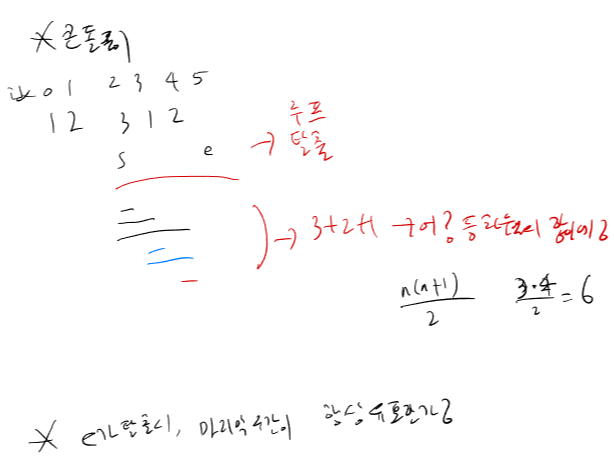 * 큰돌풀이
idx 0 1 2 3 4 5
1 2 3 1 2
s e → 루프
탈출
→ 3+2+1 → 어?
n(n+1)/2 3·4/2 = 6
* e가 탈출시, 마지막 구간이 항상 유효한가?